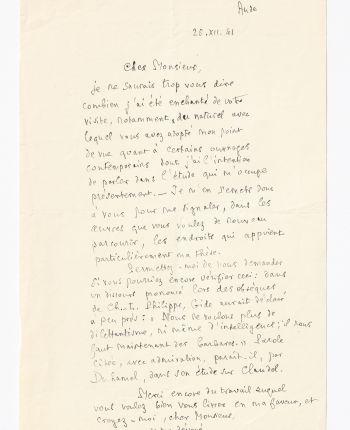 Aude
25.XII.41
Cher Monsieur,
je ne saurais trop vous dire
combien j'ai été enchanté de votre
visite, notamment, du naturel avec
lequel vous avez adopté mon point
de vue quant à certains ouvrages
contemporains dont j'ai l'intention
de parler dans l'étude qui m'occupe
présentement. — Je m'en remets donc
à vous pour me signaler, dans les
œuvres que vous voulez de nouveau
parcourir, les endroits qui appuient
particulièrement ma thèse.
Permettez-moi de vous demander
si vous pourriez encore vérifier ceci: dans
un discours prononcé lors des obsèques
de Ch.-L. Philippe, Gide aurait déclaré
à peu près: « Nous ne voulons plus de
dilettantisme, ni même d'intelligence; il nous
faut maintenant des barbares. » Parole
citée, avec admiration, paraît-il, par
Duhamel, dans son étude sur Claudel.
Merci encore du travail auquel
vous voulez bien vous livrer en ma faveur, et
croyez-moi, cher Monsieur,
votre dévoué